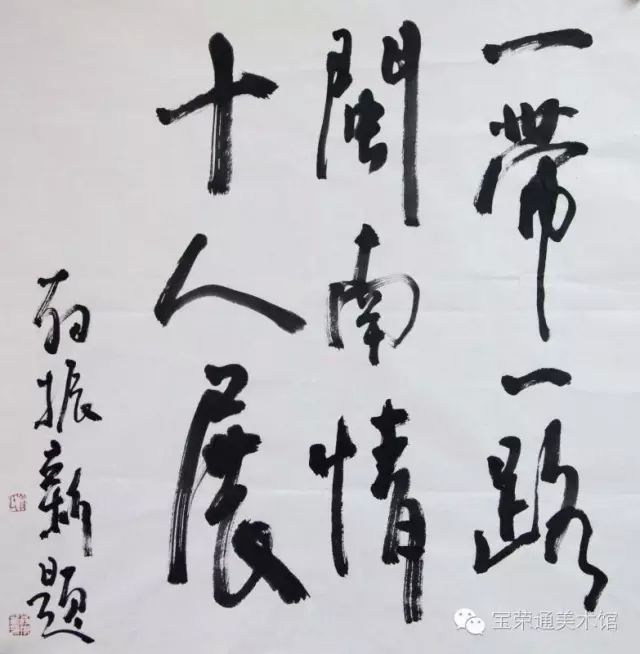 一帶一路
閩南情
十人展
振新題
宝荣通美术馆